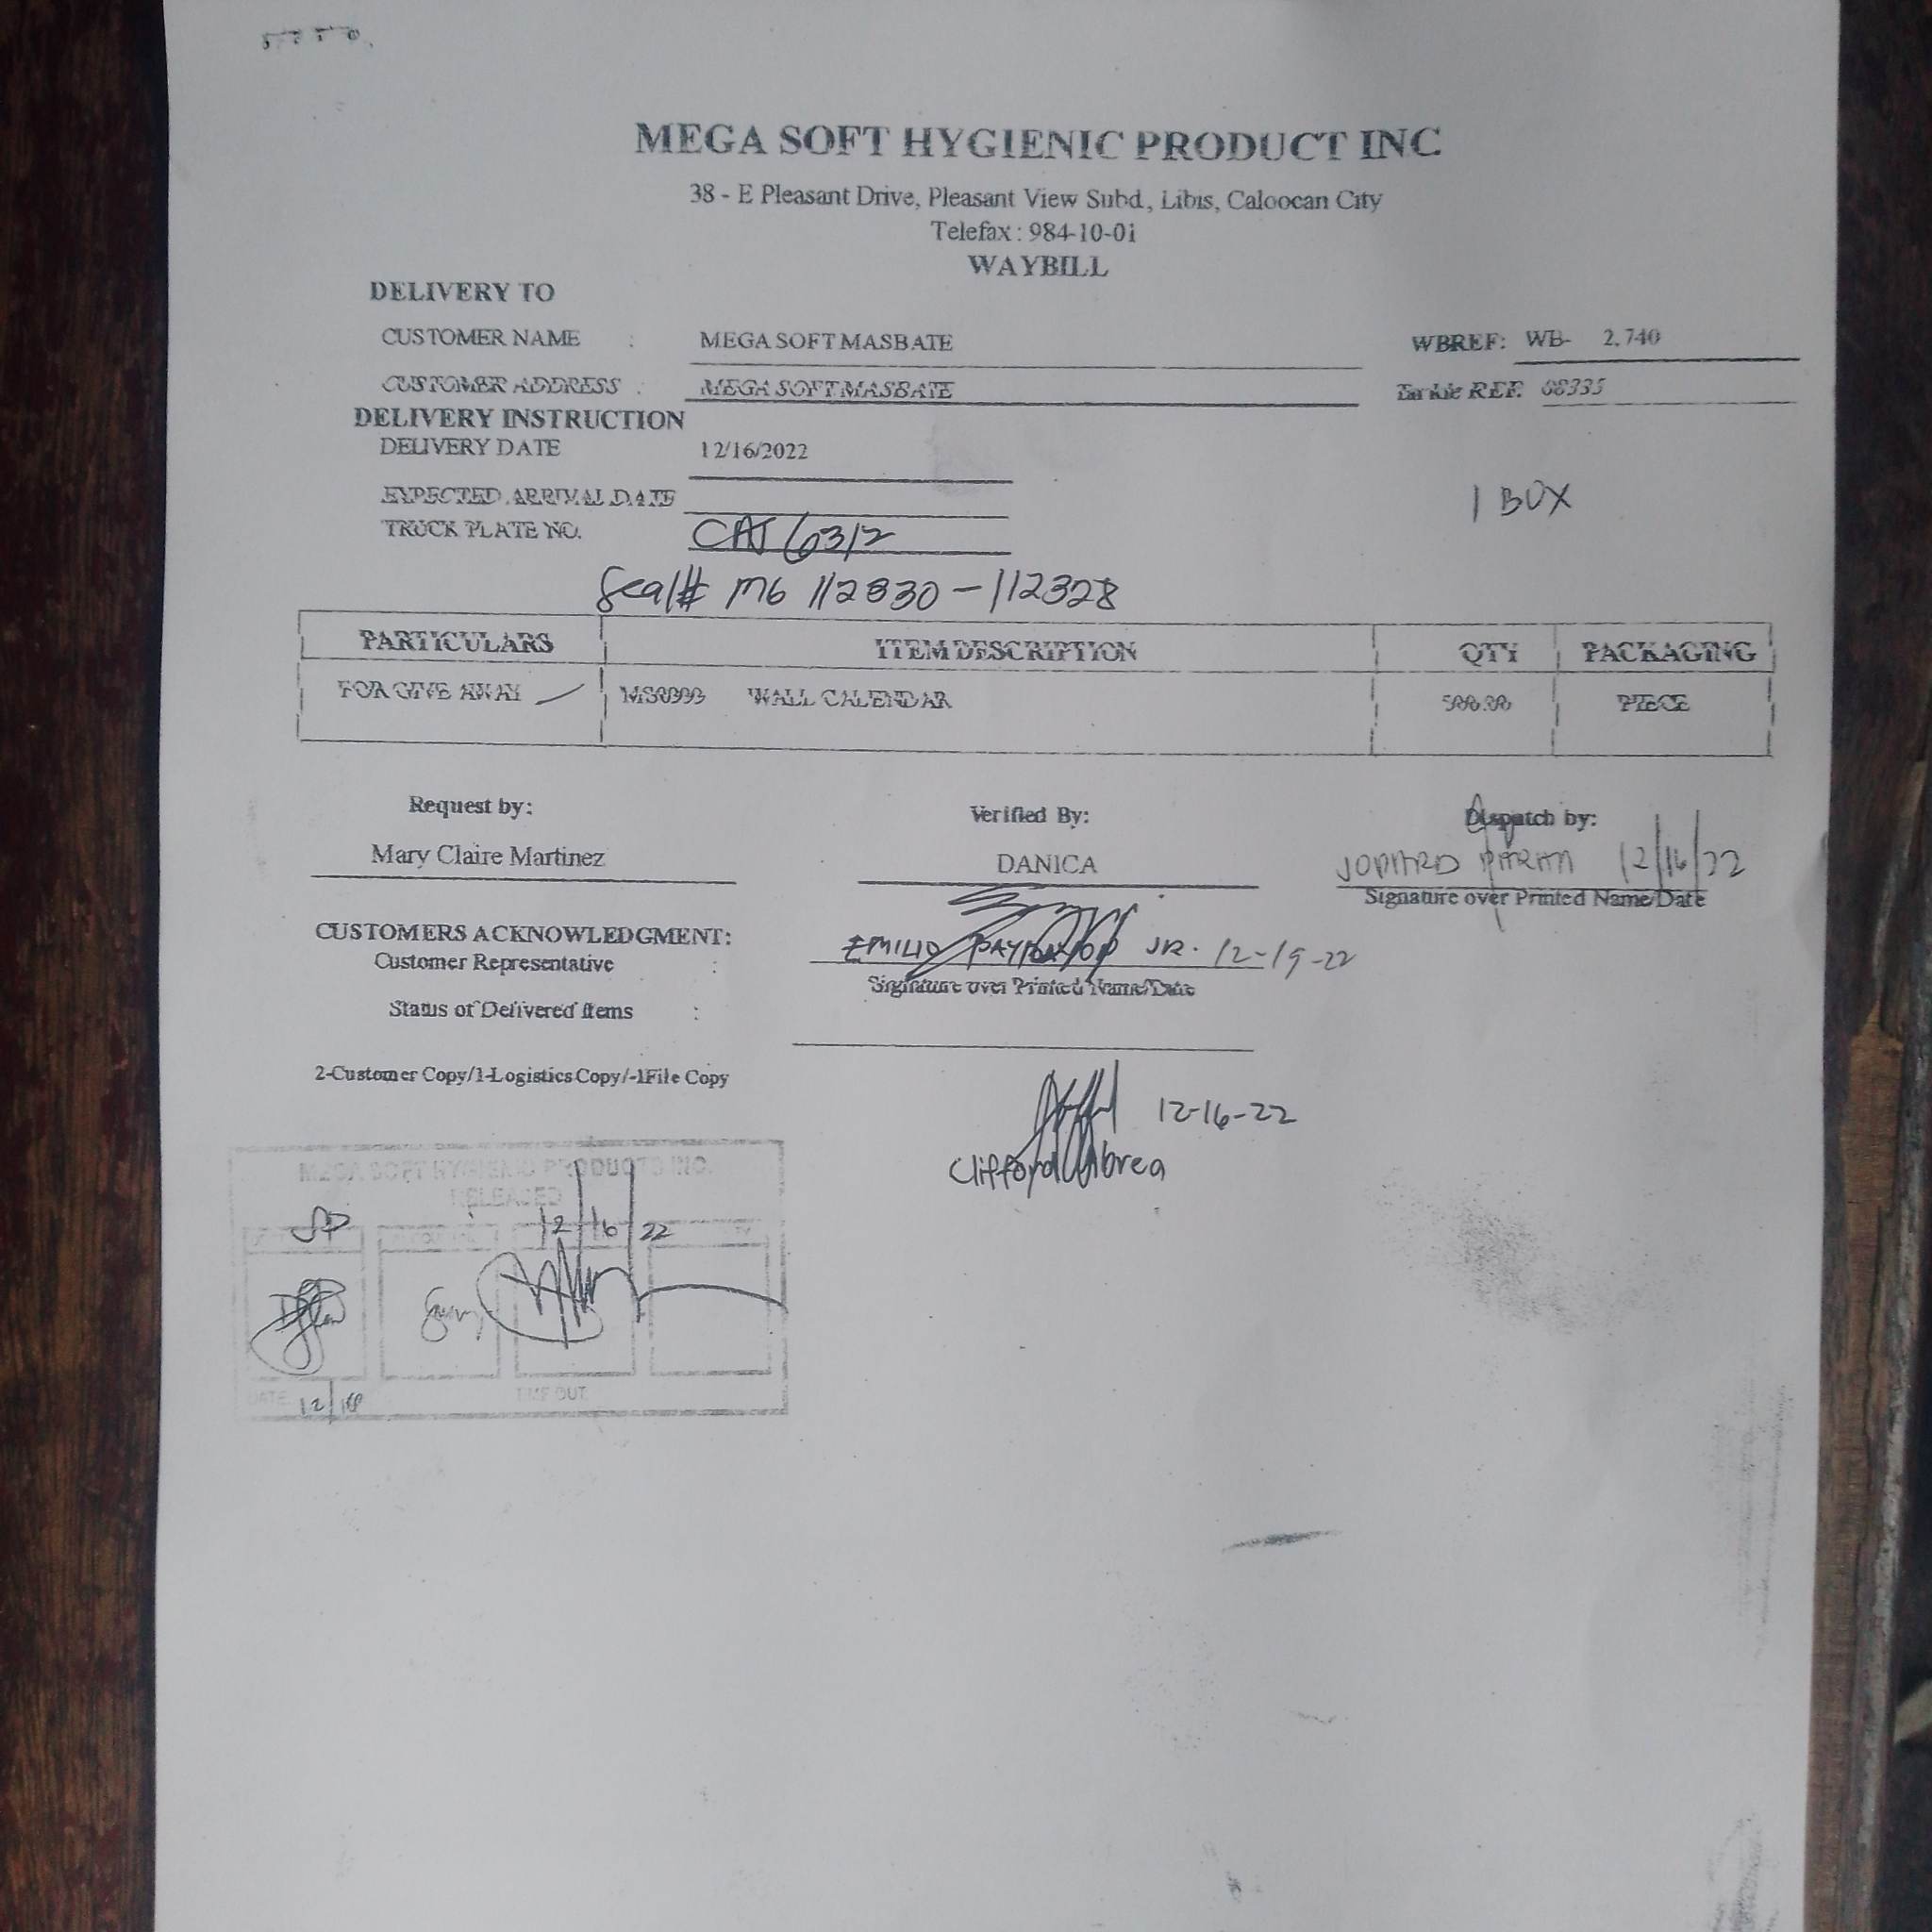 MEGA SOFT HYGIENIC PRODUCT INC
38 - E Pleasant Drive, Pleasant View Subd., Libis, Caloocan City
Telefax : 984-10-01
WAYBILL
DELIVERY TO
CUSTOMER NAME : MEGA SOFT MASBATE WBREF: WB- 2,740
CUSTOMER ADDRESS : MEGA SOFT MASBATE Tarkie REF. 08335
DELIVERY INSTRUCTION
DELIVERY DATE 12/16/2022
EXPECTED ARRIVAL DATE
1 BOX
TRUCK PLATE NO. CAT 6312
Seal# M6 112830-112328
PARTICULARS ITEM DESCRIPTION QTY PACKAGING
FOR GIVE AWAY WALL CALENDAR PIECE
Request by: Verified By: Dispatch by:
Mary Claire Martinez DANICA 12/16/22
Signature over Printed Name/Date
CUSTOMERS ACKNOWLEDGMENT:
Customer Representative : EMILIO JR. 12-19-22
Signature over Printed Name/Date
Status of Delivered Items :
2-Customer Copy/1-Logistics Copy/-1File Copy
12-16-22
Clifford Abrea
MEGA SOFT HYGIENIC PRODUCTS INC.
RELEASED
12/16/22
DATE 12/16 TIME OUT